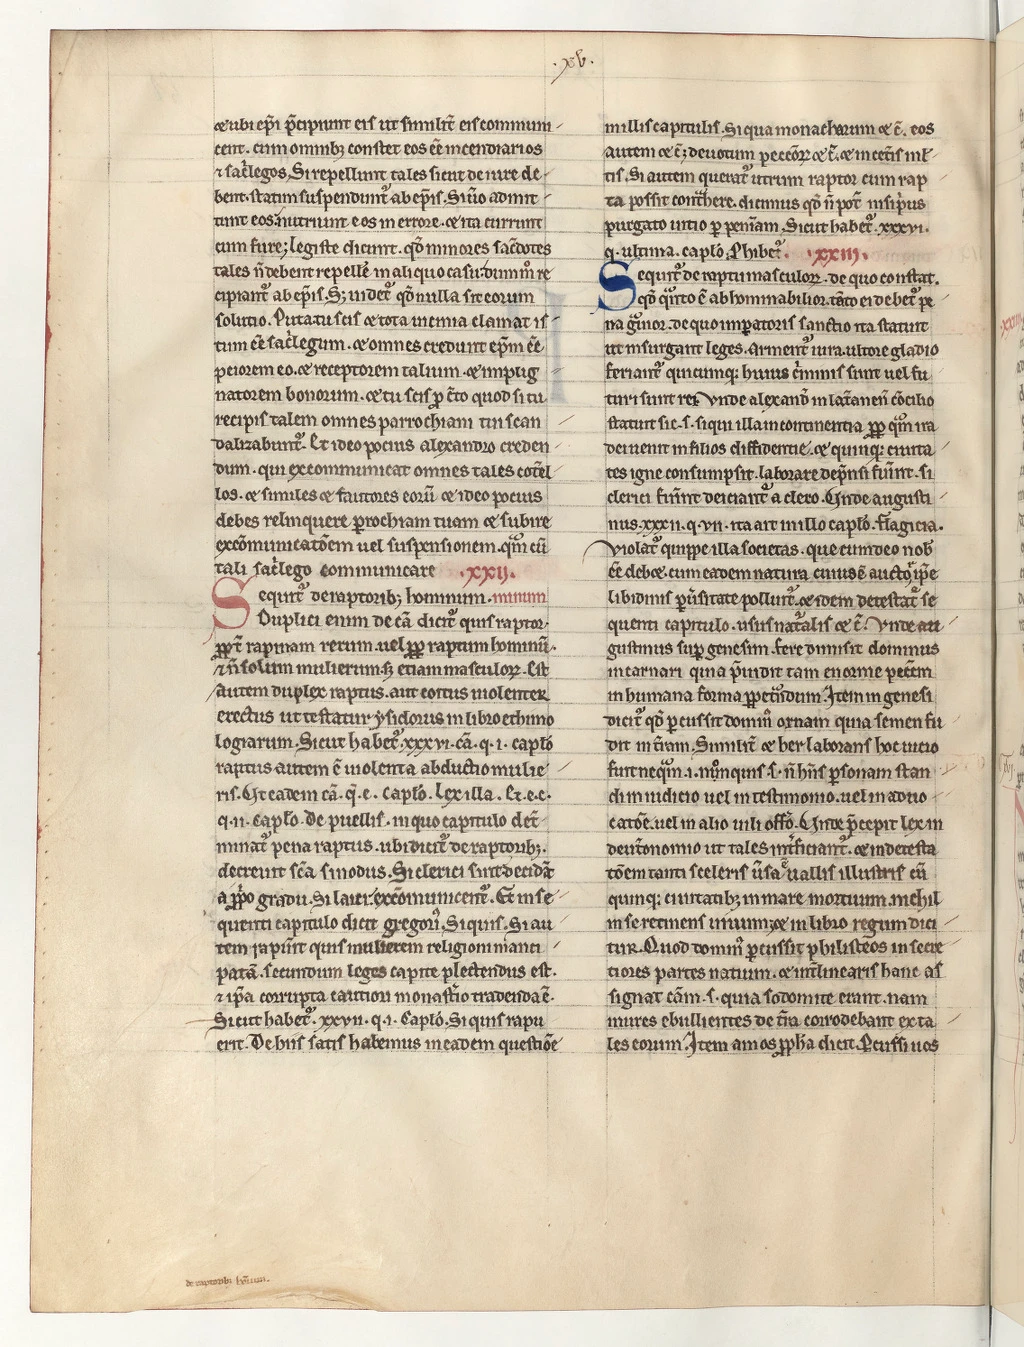 .xv.
& ubi ep̄i p̄cipiunt eis ut similit̄ eis commun
cent. cum omnibꝫ constet eos eē incendiarios
⁊ sac̄legos. Si repellunt tales sicut de iure de
bent. statim suspendunt᷑ ab ep̄is. Si ūo admit
tunt eos. nutriunt eos in errore. & ita currunt
cum fure; legiste dicunt. qd̄ minores sac̄dotes
tales n̄ debent repelle᷑ in aliquo casu. dummͦ re
cipiant᷑ ab ep̄is. Sꝫ uidet᷑ qd̄ nulla sit eorum
solutio. Puta tu scis & tota uicinia clamat is
tum eē sac̄legum. & omnes credunt ep̄m eē
peiorem eo. & receptorem talium. & impug
natorem bonorum. & tu scis ꝑ c̄to quod si tu
recipis talem omnes parrochiani tui scan
dalizabunt᷑. Et ideo pocius alexandro creden
dum. qui excommunicat omnes tales
los. & similes & fautores eorū & ideo pocius
debes relinquere ꝑrochiam tuam & subire
excōmunicatōem uel suspensionem. qm̄ cū
tali sac̄lego communicare .xxii.
Sequit᷑ de raptoribꝫ hominum.
Duplici enim de cā dicit᷑ quis raptor.
rapinam rerum. uel ꝓꝑ raptum hominū.
⁊ n̄ solum mulierum. sꝫ etiam masculoꝝ. Est
autem duplex raptus. aut coitus uiolenter
erectus ut testatur ysidorus in libro ethimo
logiarum. Sicut habet᷑. xxxvi. cā. q. i. caplo
raptus autem ē uiolenta abductio mulie
ris. Et eadem cā. q̄. e. caplo. Lex illa. Et. e. c.
q. ii. caplo. de puellis. in quo capitulo det̄
minat᷑ pena raptus. ubi dicit᷑ de raptoribꝫ.
decreuit sc̄a sinodus. Si clerici sint decidāt
a ꝓpͦo gradu. Si laici excōmunicent᷑. Et in se
quenti capitulo dicit gregori᷑. Si quis. Si au
tem rapiūt quis mulierem religioni manci
patā. secundum leges capite plectendus est.
⁊ ip̄a corrupta cautiori monast̄io tradenda ē.
Sicut habet᷑. xxvii. q. i. Caplo. Si quis rapu
erit. De hiis satis habemus in eadem questiōe
in illis capitulis. Si qua monacharum & c̄. eos
autem & c̄; deuotum & c̄. & in
tis. Si autem querat᷑ utrum raptor cum rap
ta possit cont̄here. dicimus qd̄ n̄ pot̄ nisi p̄us
purgato uitio ꝑ peniam. Sicut habet᷑. xxxvi.
q. ultima. caplo. .xxiii.
Sequit᷑ de raptu masculoꝝ. de quo constat.
qd̄ qͣnto ē abhominabilior. tāto ei debet᷑ pe
na gͣuior. de quo imꝑatoris sanctio ita statuit
ut insurgant leges. arment᷑ iura. ultore gladio
feriant᷑ quicumqꝫ huius c̄minis sunt uel fu
turi sunt rei. Vnde alexand᷑ in lat̄anen̄ cōcilio
statuit sic. s. si qui illa incontinentia ꝓꝑ qm̄ ira
dei uenit in filios diffidentie. & quinqꝫ ciuita
tes igne consumpsit. laborare dep̄nsi fūint. si
clerici fūint deiciant᷑ a clero. Vnde augusti
nus. xxxii. q. vii. ita ait in illo caplo. flagicia.
Violat᷑ quippe illa societas. que cum deo nob᷑
eē debet. cum eadem natura cuius ē auctor ip̄e
libidinis ꝑūsitate polluit᷑. & idem detestat᷑ se
quenti capitulo. usus nat᷑alis & c̄. Vnde au
gustinus suꝑ genesim. fere dimisit dominus
incarnari quia p̄uidit tam enorme pecc̄m
in humana forma ꝑpet᷑ndum. Item in genesi
dicit᷑ qd̄ ꝑcussit domin᷑ ornam quia semen fu
dit in t̄ram. Similit̄ & her laborans hoc uicio
fuit neqͣm. i. s. n̄ hn̄s ꝑsonam stan
di in iudicio uel in testimonio. uel in aduo
catōe. uel in alio uili offͦo. Vnde p̄cepit lex in
deut̄onomio ut tales int̄ficiant᷑. & in detesta
tōem tanti sceleris ūsa ē uallis illustris cū
quinqꝫ ciuitatibꝫ in mare mortuum. nichil
in se retinens uiuum; & in libro regum dici
tur. Quod domin᷑ ꝑcussit philisteos in secre
ciores partes natium. & int̄linearis hanc as
signat cām. s. quia sodomite erant. nam
mures ebullientes de t̄ra corrodebant exta
les eorum. Item amos ꝓph̄a dicit. Percussi uos
de raptoribꝫ